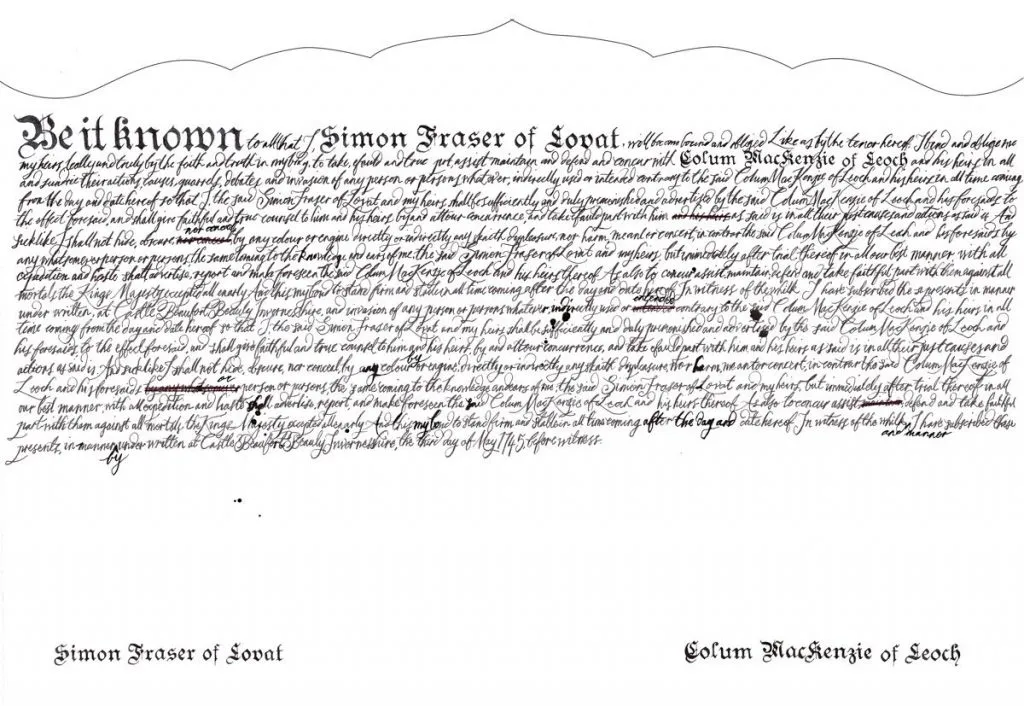 Be it known to all that I, Simon Fraser of Lovat, will be bound and obliged Like as by the tenor hereof, I bind and oblige me
my heirs, leally and truely by the faith and troth in my body, to take, efauld and true part, assist maintain and defend and concur with Colum MacKenzie of Leoch and his heirs in all
and sundrie their actions, causes, quarrels, debates and invasion of any person or persons whatever, indirectly used or intended contrary to the said Colum MacKenzie of Leoch, and his heirs in all time coming
from the day and date hereof so that I, the said Simon Fraser of Lovat and my heirs shall be sufficiently and duly premonished and advertised by the said Colum MacKenzie of Leoch and his foresaids to
the effect foresaid, and shall give faithful and true counsel to him and his heirs by and attour concurrence, and take faithful part with him and his heirs as said is in all their just causes and actions as said is. And
sicklike I shall not hide, obscure, nor conceal by any colour or engine directly or indirectly any skaith displeasure, nor harm, mean ler concert, in contrar the said Colum MacKenzie of Leoch and his foresaids by
any whatsomever person or persons, the same coming to the knowledge and ears of me, the said Simon Fraser of Lovat and my heirs, but immediately after trial thereof in all our best manner with all
expedition and haste shall advertise, report and make foreseen the said Colum MacKenzie of Leoch and his heirs thereof. As also to concur assist maintain defend and take faithful part with them against all
mortals the Kings Majesty excepted all enarly And this my bond to stand firm and stable in all time coming after the day and date hereof. In witness of the whilk I have subscribed these presents in manner
under written, at Castle Beaufort, Beauly Invernesshire, and invasion of any person or persons whatever, indirectly used or intended contrary to the said Colum MacKenzie of Leoch, and his heirs in all
time coming from the day and date hereof so that I the said Simon Fraser of Lovat and my heirs shall be sufficiently and duly premonished and advertised by the said Colum MacKenzie of Leoch and
his foresaids, to the effect foresaid, and shall give faithful and true counsel to him and his heirs, by and attour concurrence, and take efauld part with him and his heirs as said is in all their just causes and
actions as said is. And sicklike I shall not hide, obscure, nor conceal, by any colour by or engine, directly or indirectly any skaith displeasure, nor harm, mean tor concert, in contrar the said Colum MacKenzie of
Leoch and his foresaids or person or persons, the same coming to the knowledge and ears of me, the said Simon Fraser of Lovat and my heirs, but immediately after trial thereof in all
our best manner, with all expedition and haste shall advertise, report, and make foreseen the said Colum MacKenzie of Leoch and his heirs thereof. As also to concur assist defend and take faithful
part with them against all mortals, the Kings Majesty excepted all enarly. And this my bond to stand firm and stable in all time coming after the day and date hereof. In witness of the whilk, I have subscribed these
presents, in manner by under written at Castle Beaufort Beauly Invernesshire, the third day of May 1745, before witness. and manner
Simon Fraser of Lovat
Colum MacKenzie of Leoch